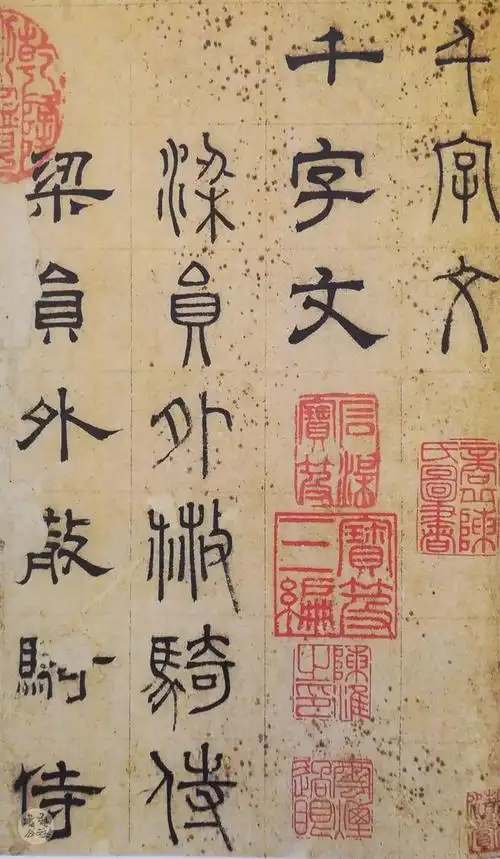 千字文
千字文
石渠寶笈
寶笈三編
梁員外散騎侍
梁員外散騎侍